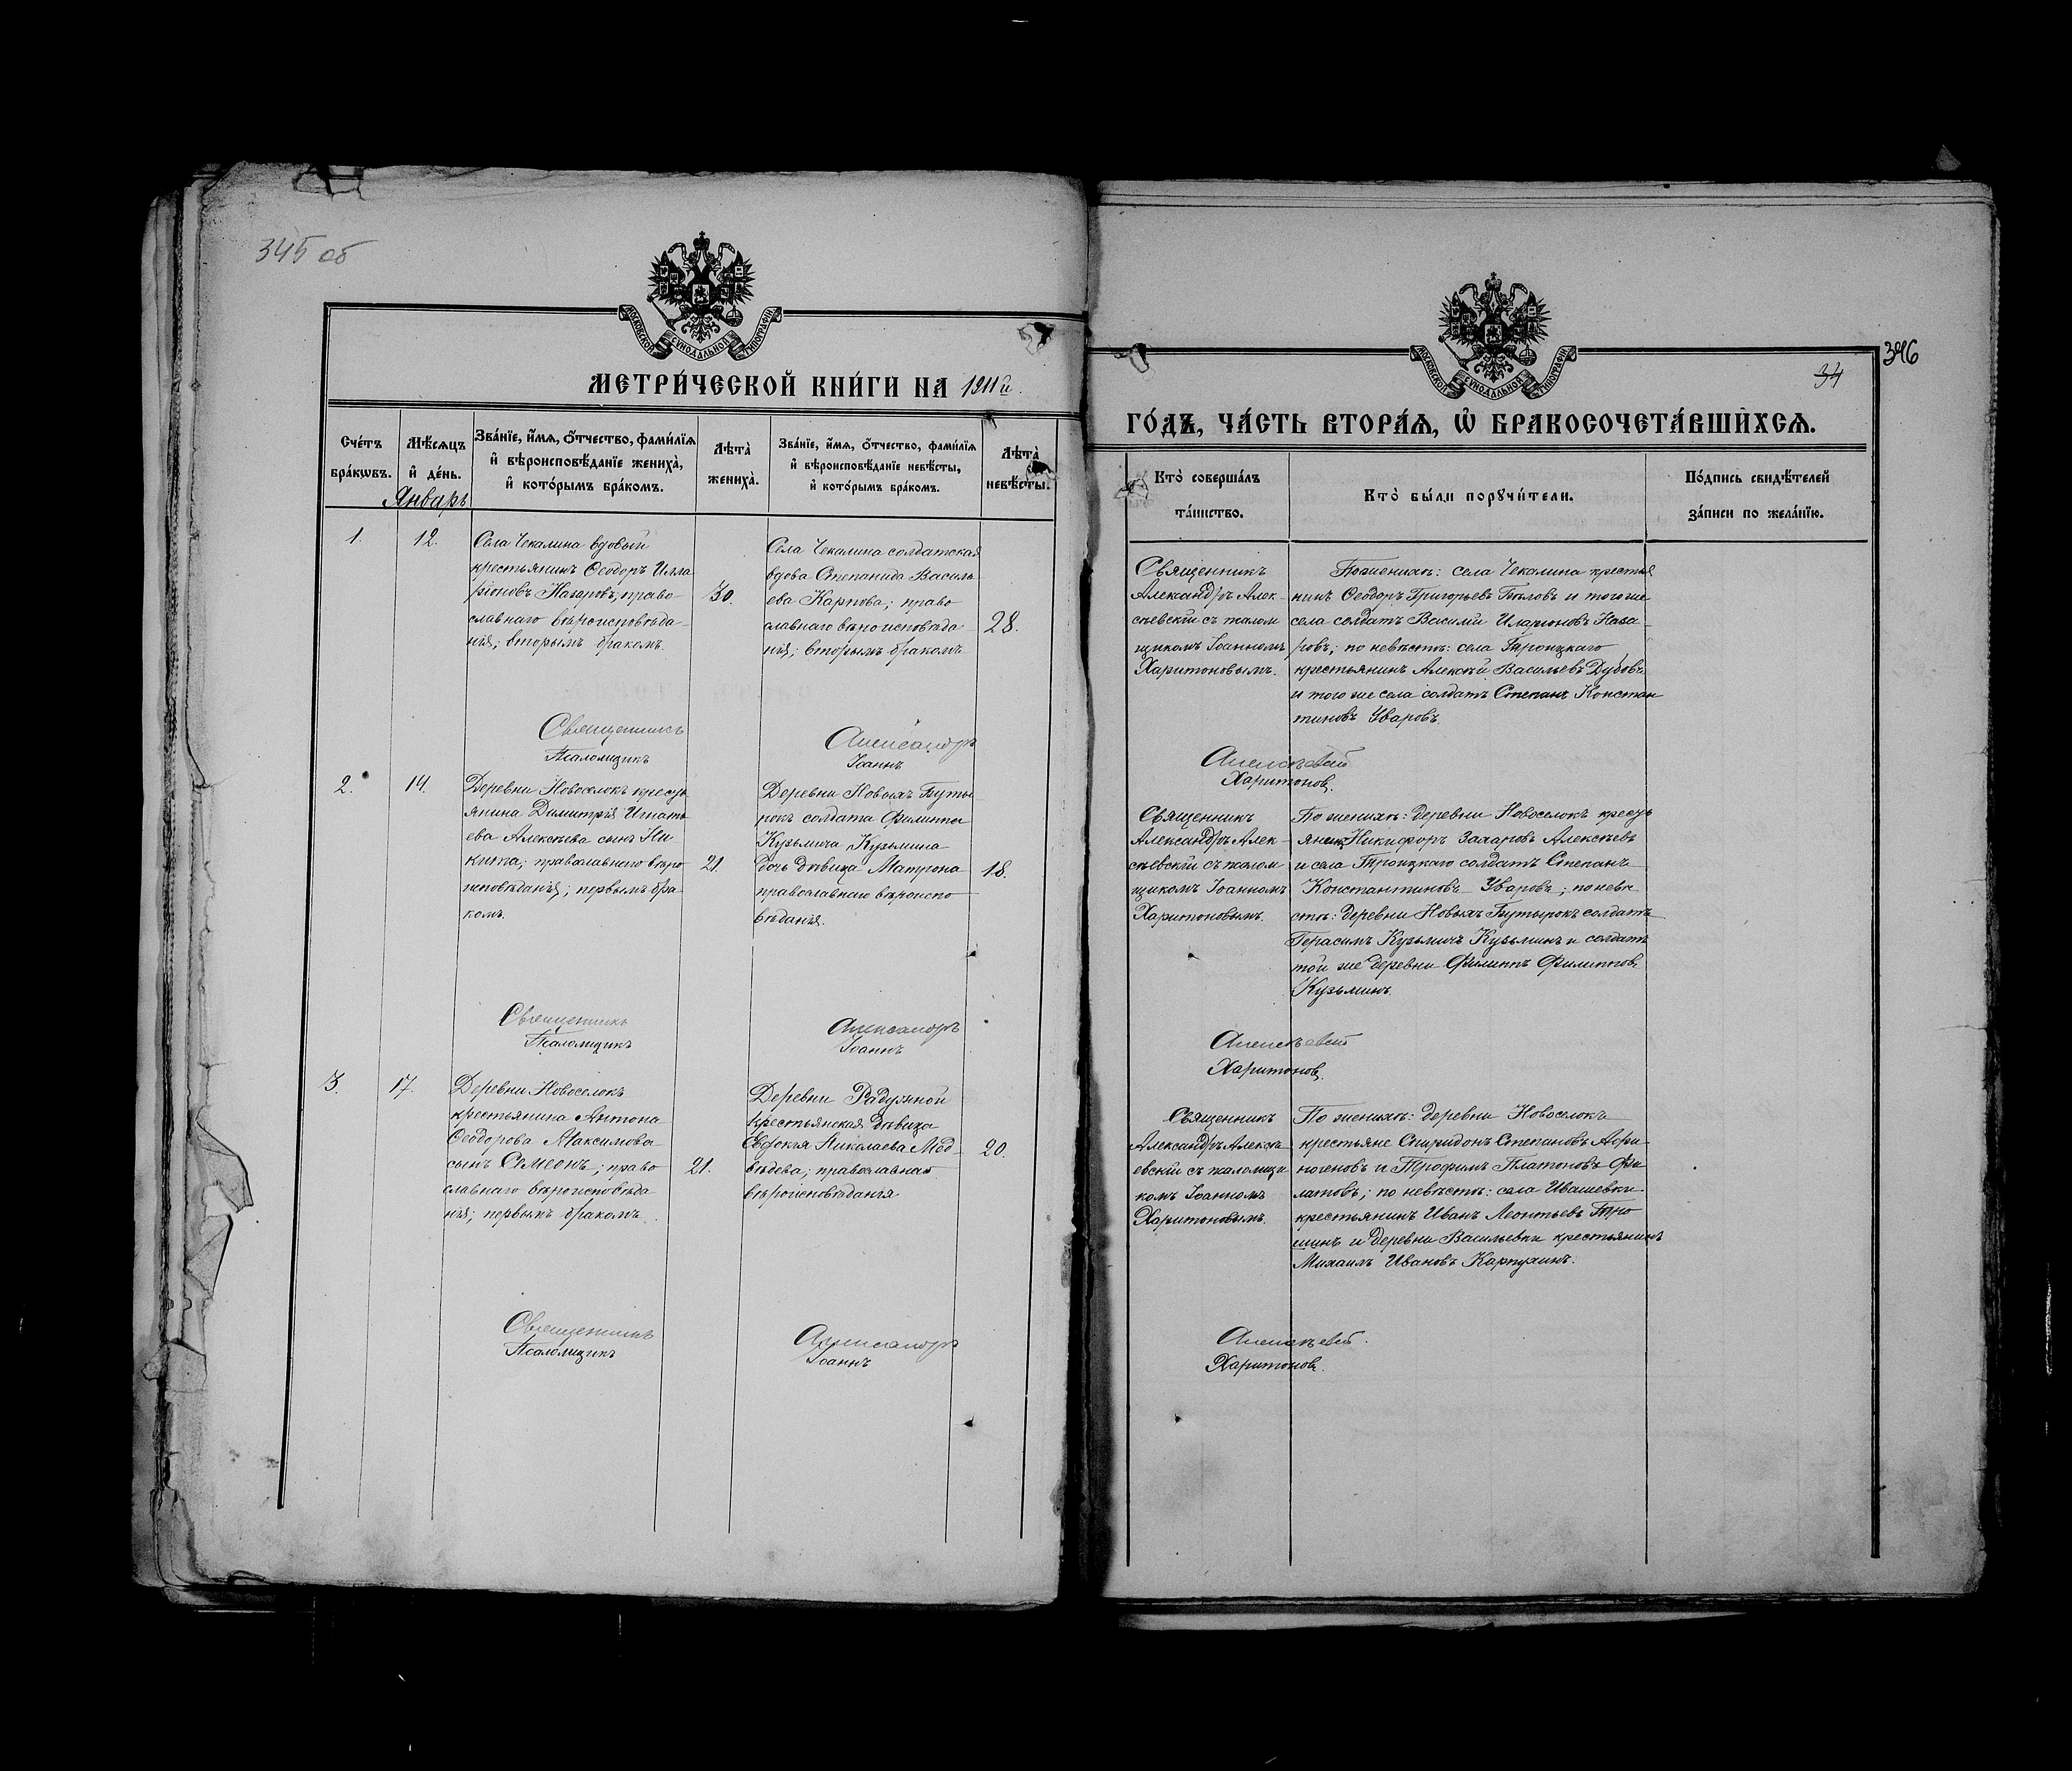 345 об
МОСКОВСКОЙ СУНОДАЛЬНОЙ ТИПОГРАФІИ
МЕТРИ́ЧЕСКОЙ КНИ́ГИ НА 1911й
Сче́тъ бра́кѡвъ.
Мѣ́сяцъ и҆ де́нь.
Январь
Зва́нїе, и҆́мѧ, ѻ҆́тчество, фами́лїѧ
и҆ вѣроисповѣ́данїе жениха̀,
и҆ кото́рымъ бра́комъ.
Лѣта̀ жениха̀.
Зва́нїе, и҆́мѧ, ѻ҆́тчество, фами́лїѧ
и҆ вѣроисповѣ́данїе невѣ́сты,
и҆ кото́рымъ бра́комъ.
Лѣта̀ невѣ́сты.
1.
12.
Села Чекалина вдовый
крестьянинъ Ѳеодоръ Илла
ріоновъ Назаровъ, право-
славнаго вѣроисповѣда-
нія; вторымъ бракомъ.
30.
Села Чекалина солдатская
вдова Степанида Василь
ева Карпова; право
славнаго вѣроисповѣда
нія; вторымъ бракомъ
28.
Священникъ Александръ
Псаломщикъ Іоаннъ
2.
14.
Деревни Новоселокъ кресть
янина Димитрія Игнать
ева Алексѣева сынъ Ни
кита; православнаго вѣро
исповѣданія; первымъ бра-
комъ.
21.
Деревни Новыхъ Буты
рокъ солдата Филиппа
Кузьмича Кузьмина
дочь дѣвица Матрона
православнаго вѣроиспо
вѣданія.
18.
Священникъ Александръ
Псаломщикъ Іоаннъ
3.
17.
Деревни Новоселокъ
крестьянина Антона
Ѳеодорова Максимова
сынъ Симеонъ; право
славнаго вѣроисповѣда
нія; первымъ бракомъ.
21.
Деревни Радужной
крестьянская дѣвица
Евдокія Николаева Мед-
вѣдева; православнаго
вѣроисповѣданія
20.
Священникъ Александръ
Псаломщикъ Іоаннъ
346
34
МОСКОВСКОЙ СУНОДАЛЬНОЙ ТИПОГРАФІИ
ГО́ДЪ, ЧА́СТЬ ВТОРА́Ѧ, Ѡ҆ БРАКОСОЧЕТА́ВШИХСѦ.
Кто̀ соверша́лъ
та́инство.
Кто̀ бы́ли порꙋчи́тели.
По́дпись свидѣ́телей
за́писи по жела́нїю.
Священникъ
Александръ Алек-
сѣевскій съ псалом
щикомъ Іоанномъ
Харитоновымъ.
По жениху: села Чекалина крестья
нинъ Ѳеодоръ Григорьевъ Бѣловъ и того же
села солдатъ Василій Иларіоновъ Наза
ровъ; по невѣстѣ: села Троицкаго
крестьянинъ Алексѣй Васильевъ Дубовъ
и того же села солдатъ Степанъ Констан
тиновъ Уваровъ.
Алексѣевскій
Харитоновъ.
Священникъ
Александръ Алек-
сѣевскій съ псалом
щикомъ Іоанномъ
Харитоновымъ.
По жениху: деревни Новоселокъ кресть
янинъ Никифоръ Захаровъ Алексѣевъ
и села Троицкаго солдатъ Степанъ
Константиновъ Уваровъ; по невѣ
стѣ: деревни Новыхъ Бутырокъ солдатъ
Герасимъ Кузьмичъ Кузьминъ и солдатъ
той же деревни Филиппъ Филипповъ
Кузьминъ.
Алексѣевскій
Харитоновъ.
Священникъ
Александръ Алексѣ
евскій съ псаломщи
комъ Іоанномъ
Харитоновымъ.
По жениху: деревни Новоселокъ
крестьяне Спиридонъ Степановъ Аѳи
ногеновъ и Трофимъ Платоновъ Фи
латовъ; по невѣстѣ: села Ивашевки
крестьянинъ Иванъ Леонтьевъ Тро
шинъ и деревни Васильевки крестьянинъ
Михаилъ Ивановъ Карпухинъ.
Алексѣевскій.
Харитоновъ.